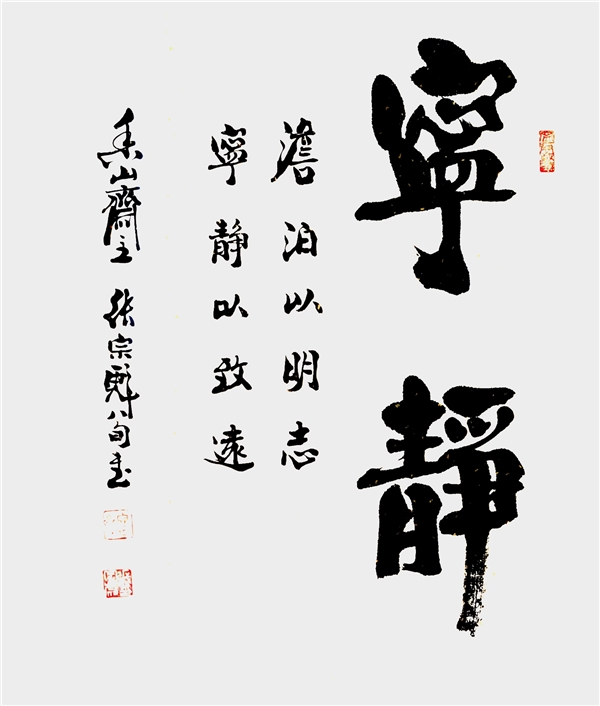 寧靜
澹泊以明志
寧靜以致遠
香山齋主 张宗八旬书